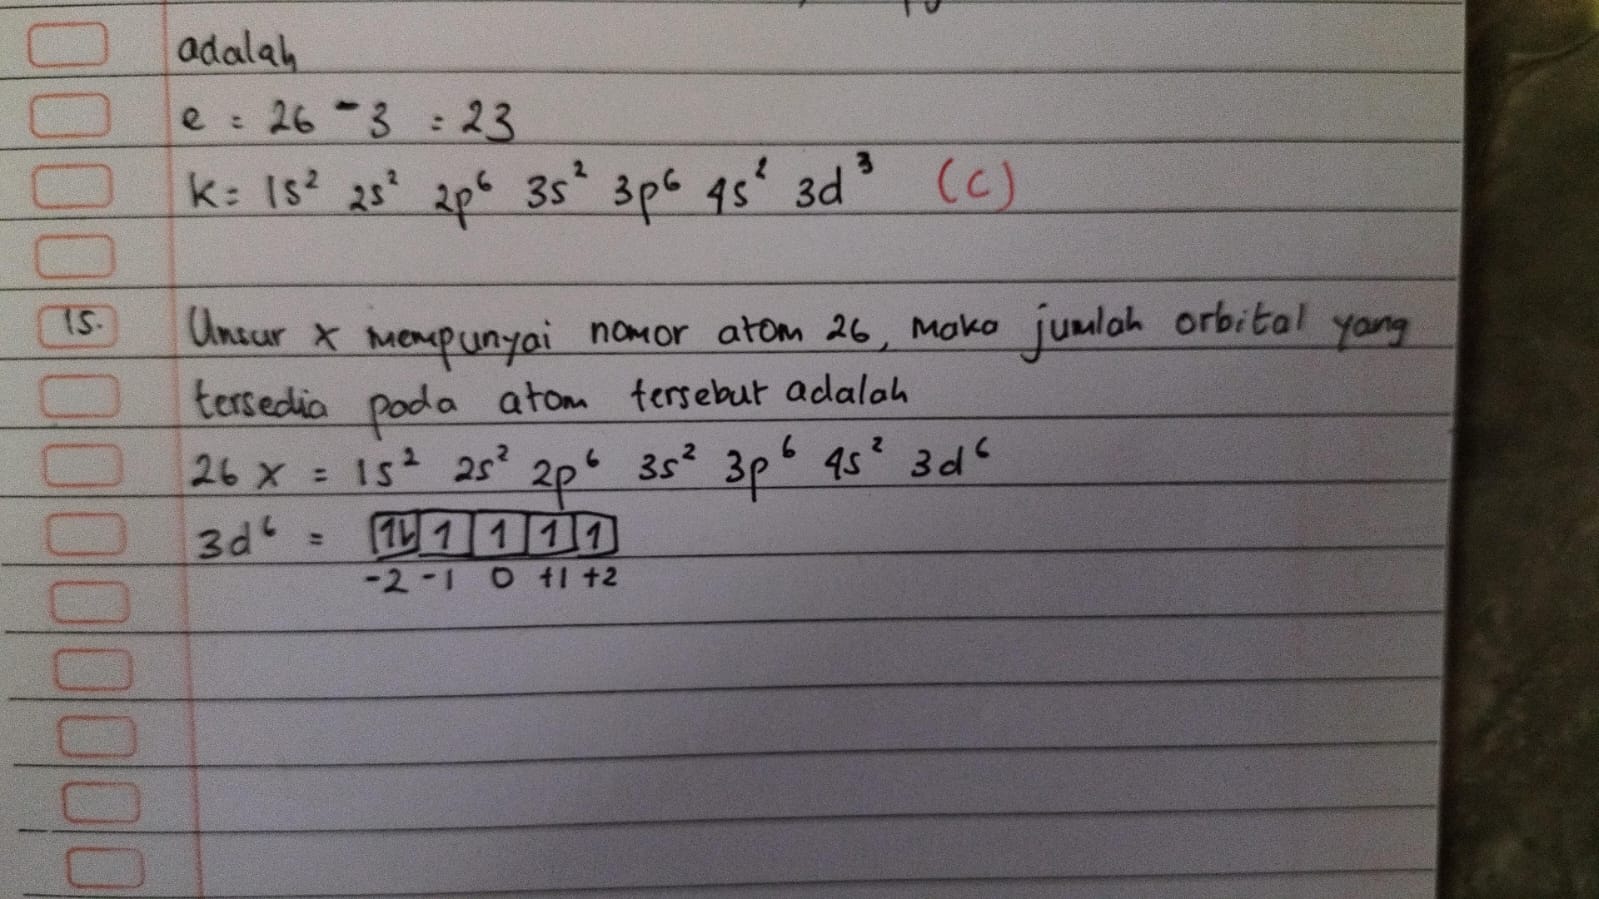 adalah
e = 26 - 3 = 23
K = 1s² 2s² 2p⁶ 3s² 3p⁶ 4s² 3d³ (C)
15. Unsur X mempunyai nomor atom 26, maka jumlah orbital yang
tersedia pada atom tersebut adalah
26 X = 1s² 2s² 2p⁶ 3s² 3p⁶ 4s² 3d⁶
3d⁶ = 1L 1 1 1 1
-2 -1 0 +1 +2